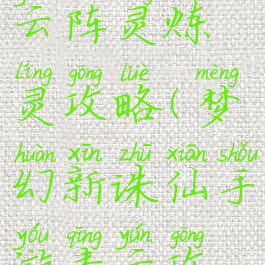 云阵灵炼
líng gōng lüè mèng
灵攻略(梦
huàn xīn zhū xiān shǒu
幻新诛仙手
yóu qīng yún gōng
游青云攻